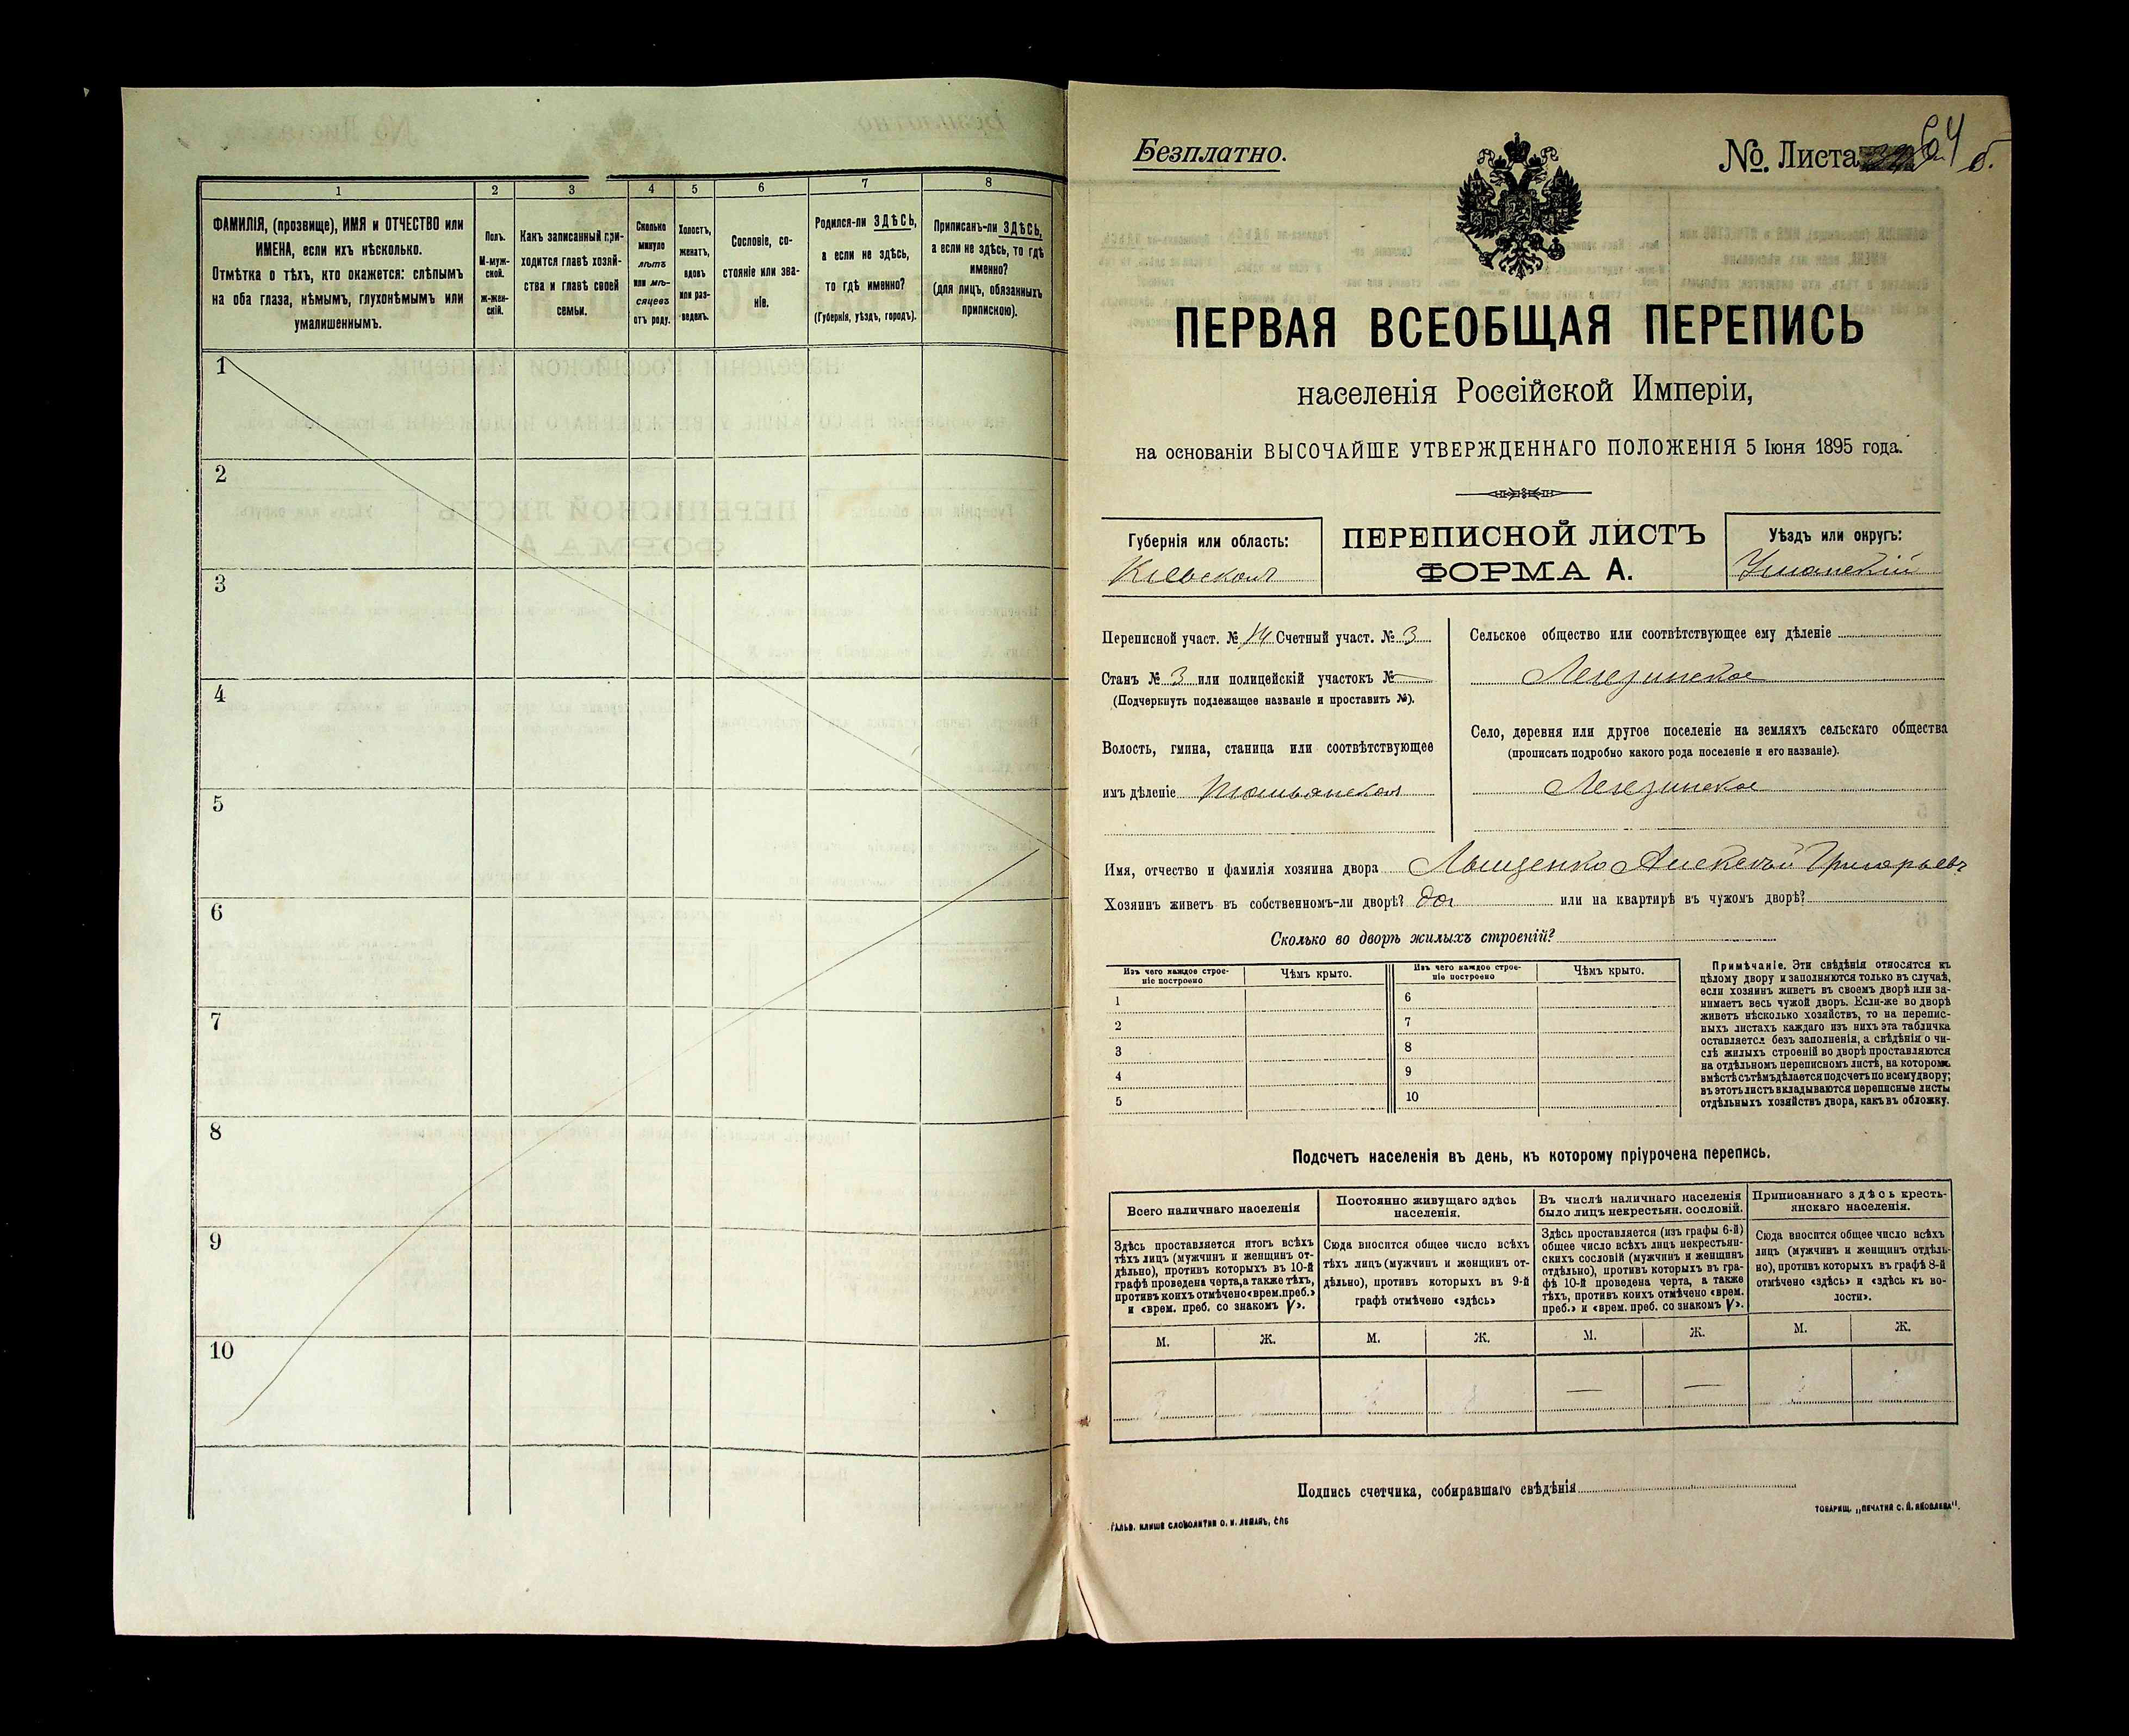 1 2 3 4 5 6 7 8
ФАМИЛІЯ, (прозвище), ИМЯ и ОТЧЕСТВО или
ИМЕНА, если ихъ нѣсколько.
Отмѣтка о тѣхъ, кто окажется: слѣпымъ
на оба глаза, нѣмымъ, глухонѣмымъ или
умалишеннымъ.
Полъ.
М-муж-
ской.
ж-жен-
скій.
Какъ записанный при-
ходится главѣ хозяй-
ства и главѣ своей
семьи.
Сколько
минуло
лѣтъ
или мѣ-
сяцевъ
отъ роду.
Холостъ,
женатъ,
вдовъ
или раз-
веденъ.
Сословіе, со-
стояніе или зва-
ніе.
Родился-ли ЗДѢСЬ,
а если не здѣсь,
то гдѣ именно?
(Губернія, уѣздъ, городъ).
Приписанъ-ли ЗДѢСЬ,
а если не здѣсь, то гдѣ
именно?
(для лицъ, обязанныхъ
припискою).
1
2
3
4
5
6
7
8
9
10
Безплатно.
№ Листа 64 б.
ПЕРВАЯ ВСЕОБЩАЯ ПЕРЕПИСЬ
населенія Россійской Имперіи,
на основаніи ВЫСОЧАЙШЕ УТВЕРЖДЕННАГО ПОЛОЖЕНІЯ 5 Іюня 1895 года.
Губернія или область:
Кіевская
ПЕРЕПИСНОЙ ЛИСТЪ
ФОРМА А.
Уѣздъ или округъ:
Уманскій
Переписной участ. № 14 Счетный участ. № 3
Станъ № 3 или полицейскій участокъ №
(Подчеркнуть подлежащее названіе и проставить №).
Волость, гмина, станица или соотвѣтствующее
имъ дѣленіе Тальянская
Сельское общество или соотвѣтствующее ему дѣленіе
Легезинское
Село, деревня или другое поселеніе на земляхъ сельскаго общества
(прописать подробно какого рода поселеніе и его названіе).
Легезинское
Имя, отчество и фамилія хозяина двора Лыщенко Алексѣй Григорьевъ
Хозяинъ живетъ въ собственномъ-ли дворѣ? да или на квартирѣ въ чужомъ дворѣ?
Сколько во дворѣ жилыхъ строеній?
Изъ чего каждое строе-
ніе построено
Чѣмъ крыто.
Изъ чего каждое строе-
ніе построено
Чѣмъ крыто.
1 6
2 7
3 8
4 9
5 10
Примѣчаніе. Эти свѣдѣнія относятся къ
цѣлому двору и заполняются только въ случаѣ,
если хозяинъ живетъ въ своемъ дворѣ или за-
нимаетъ весь чужой дворъ. Если-же во дворѣ
живетъ нѣсколько хозяйствъ, то на перепис-
ныхъ листахъ каждаго изъ нихъ эта табличка
оставляется безъ заполненія, а свѣдѣнія о чи-
слѣ жилыхъ строеній во дворѣ проставляются
на отдѣльномъ переписномъ листѣ, на которомъ
вмѣстѣ съ тѣмъ дѣлается подсчетъ по всему двору;
въ этотъ листъ вкладываются переписные листы
отдѣльныхъ хозяйствъ двора, какъ въ обложку.
Подсчетъ населенія въ день, къ которому пріурочена перепись.
Всего наличнаго населенія
Здѣсь проставляется итогъ всѣхъ
тѣхъ лицъ (мужчинъ и женщинъ от-
дѣльно), противъ которыхъ въ 10-й
графѣ проведена черта, а также тѣхъ,
противъ коихъ отмѣчено «врем. преб.»
и «врем. преб. со знакомъ V».
Постоянно живущаго здѣсь
населенія.
Сюда вносится общее число всѣхъ
тѣхъ лицъ (мужчинъ и женщинъ от-
дѣльно), противъ которыхъ въ 9-й
графѣ отмѣчено «здѣсь»
Въ числѣ наличнаго населенія
было лицъ некрестьян. сословій.
Здѣсь проставляется (изъ графы 6-й)
общее число всѣхъ лицъ некрестьян-
скихъ сословій (мужчинъ и женщинъ
отдѣльно), противъ которыхъ въ гра-
фѣ 10-й проведена черта, а также
тѣхъ, противъ коихъ отмѣчено «врем.
преб.» и «врем. преб. со знакомъ V».
Приписаннаго здѣсь кресть-
янскаго населенія.
Сюда вносится общее число всѣхъ
лицъ (мужчинъ и женщинъ отдѣль-
но), противъ которыхъ въ графѣ 8-й
отмѣчено «здѣсь» и «здѣсь къ во-
лости».
М. Ж. М. Ж. М. Ж. М. Ж.
— —
Подпись счетчика, собиравшаго свѣдѣнія
ГАЛЬВ. КЛИШЕ СЛОВОЛИТНИ О. И. ЛЕМАНЪ, СПБ
ТОВАРИЩ. „ПЕЧАТНЯ С. П. ЯКОВЛЕВА".